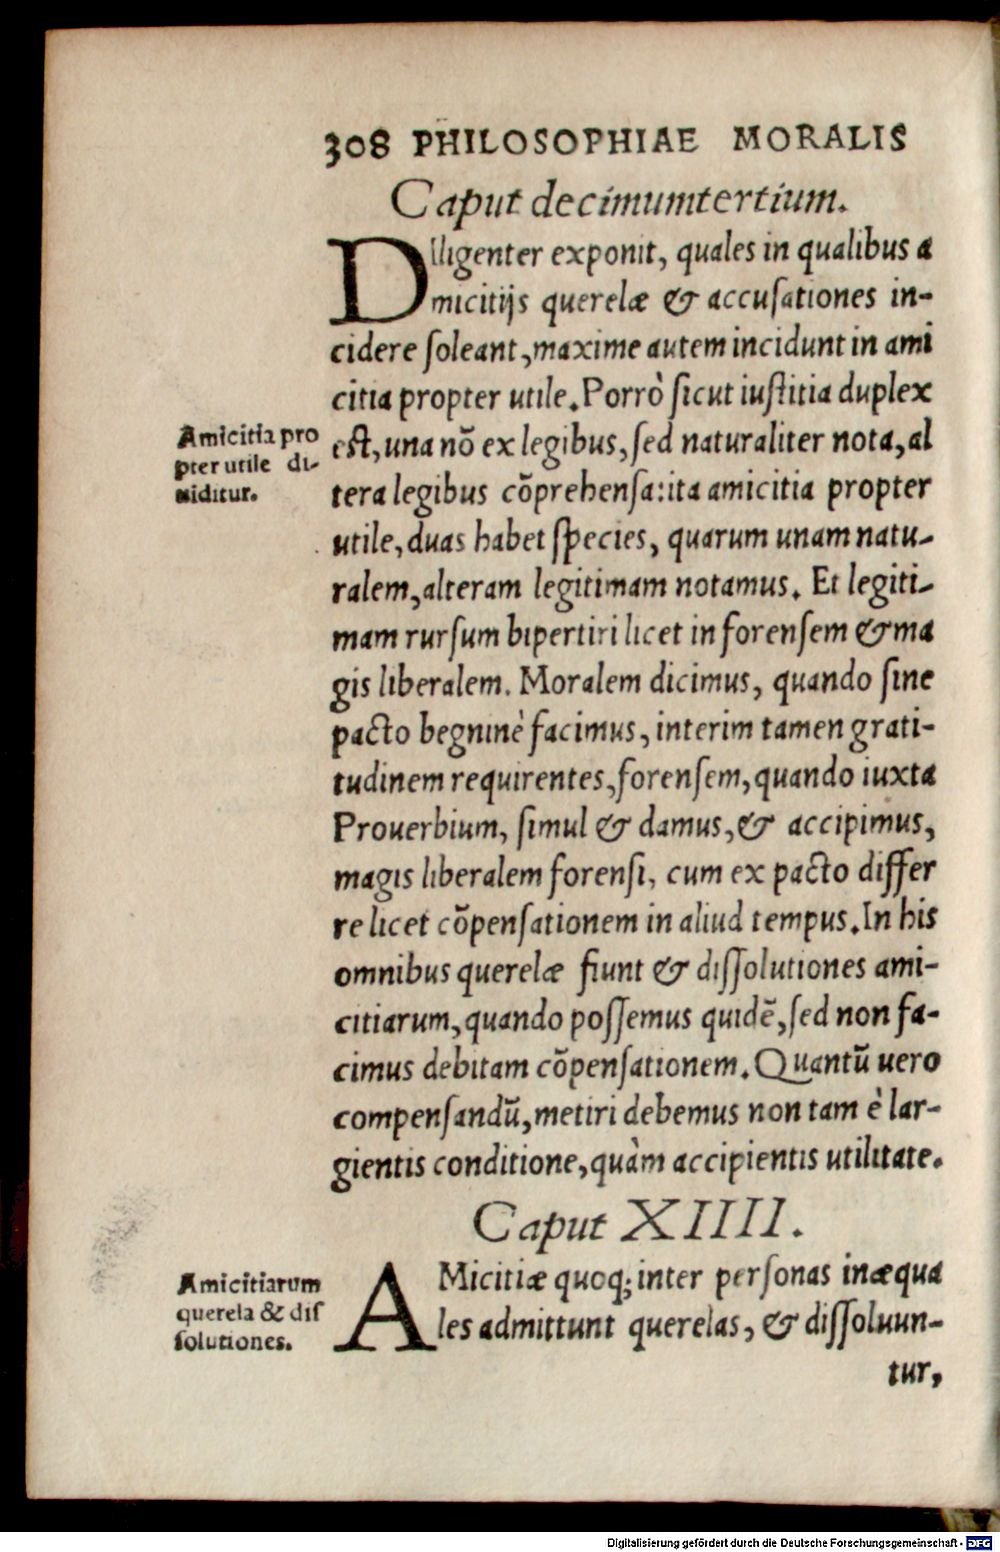 308 PHILOSOPHIAE MORALIS
Caput decimumtertium.
Diligenter exponit, quales in qualibus a
micitijs querelæ & accusationes in-
cidere soleant, maxime autem incidunt in ami
citia propter utile. Porrò sicut iustitia duplex
Amicitia pro
pter utile di-
uiditur.
est, una nõ ex legibus, sed naturaliter nota, al
tera legibus cõprehensa: ita amicitia propter
utile, duas habet species, quarum unam natu-
ralem, alteram legitimam notamus. Et legiti-
mam rursum bipertiri licet in forensem & ma
gis liberalem. Moralem dicimus, quando sine
pacto begninè facimus, interim tamen grati-
tudinem requirentes, forensem, quando iuxta
Prouerbium, simul & damus, & accipimus,
magis liberalem forensi, cum ex pacto differ
re licet cõpensationem in aliud tempus. In his
omnibus querelæ fiunt & dissolutiones ami-
citiarum, quando possemus quidẽ, sed non fa-
cimus debitam cõpensationem. Quantũ uero
compensandũ, metiri debemus non tam è lar-
gientis conditione, quàm accipientis utilitate.
Caput XIIII.
Amicitiarum
querela & dis
solutiones.
AMicitiæ quoq; inter personas inæqua
les admittunt querelas, & dissoluun-
tur,
Digitalisierung gefördert durch die Deutsche Forschungsgemeinschaft - DFG